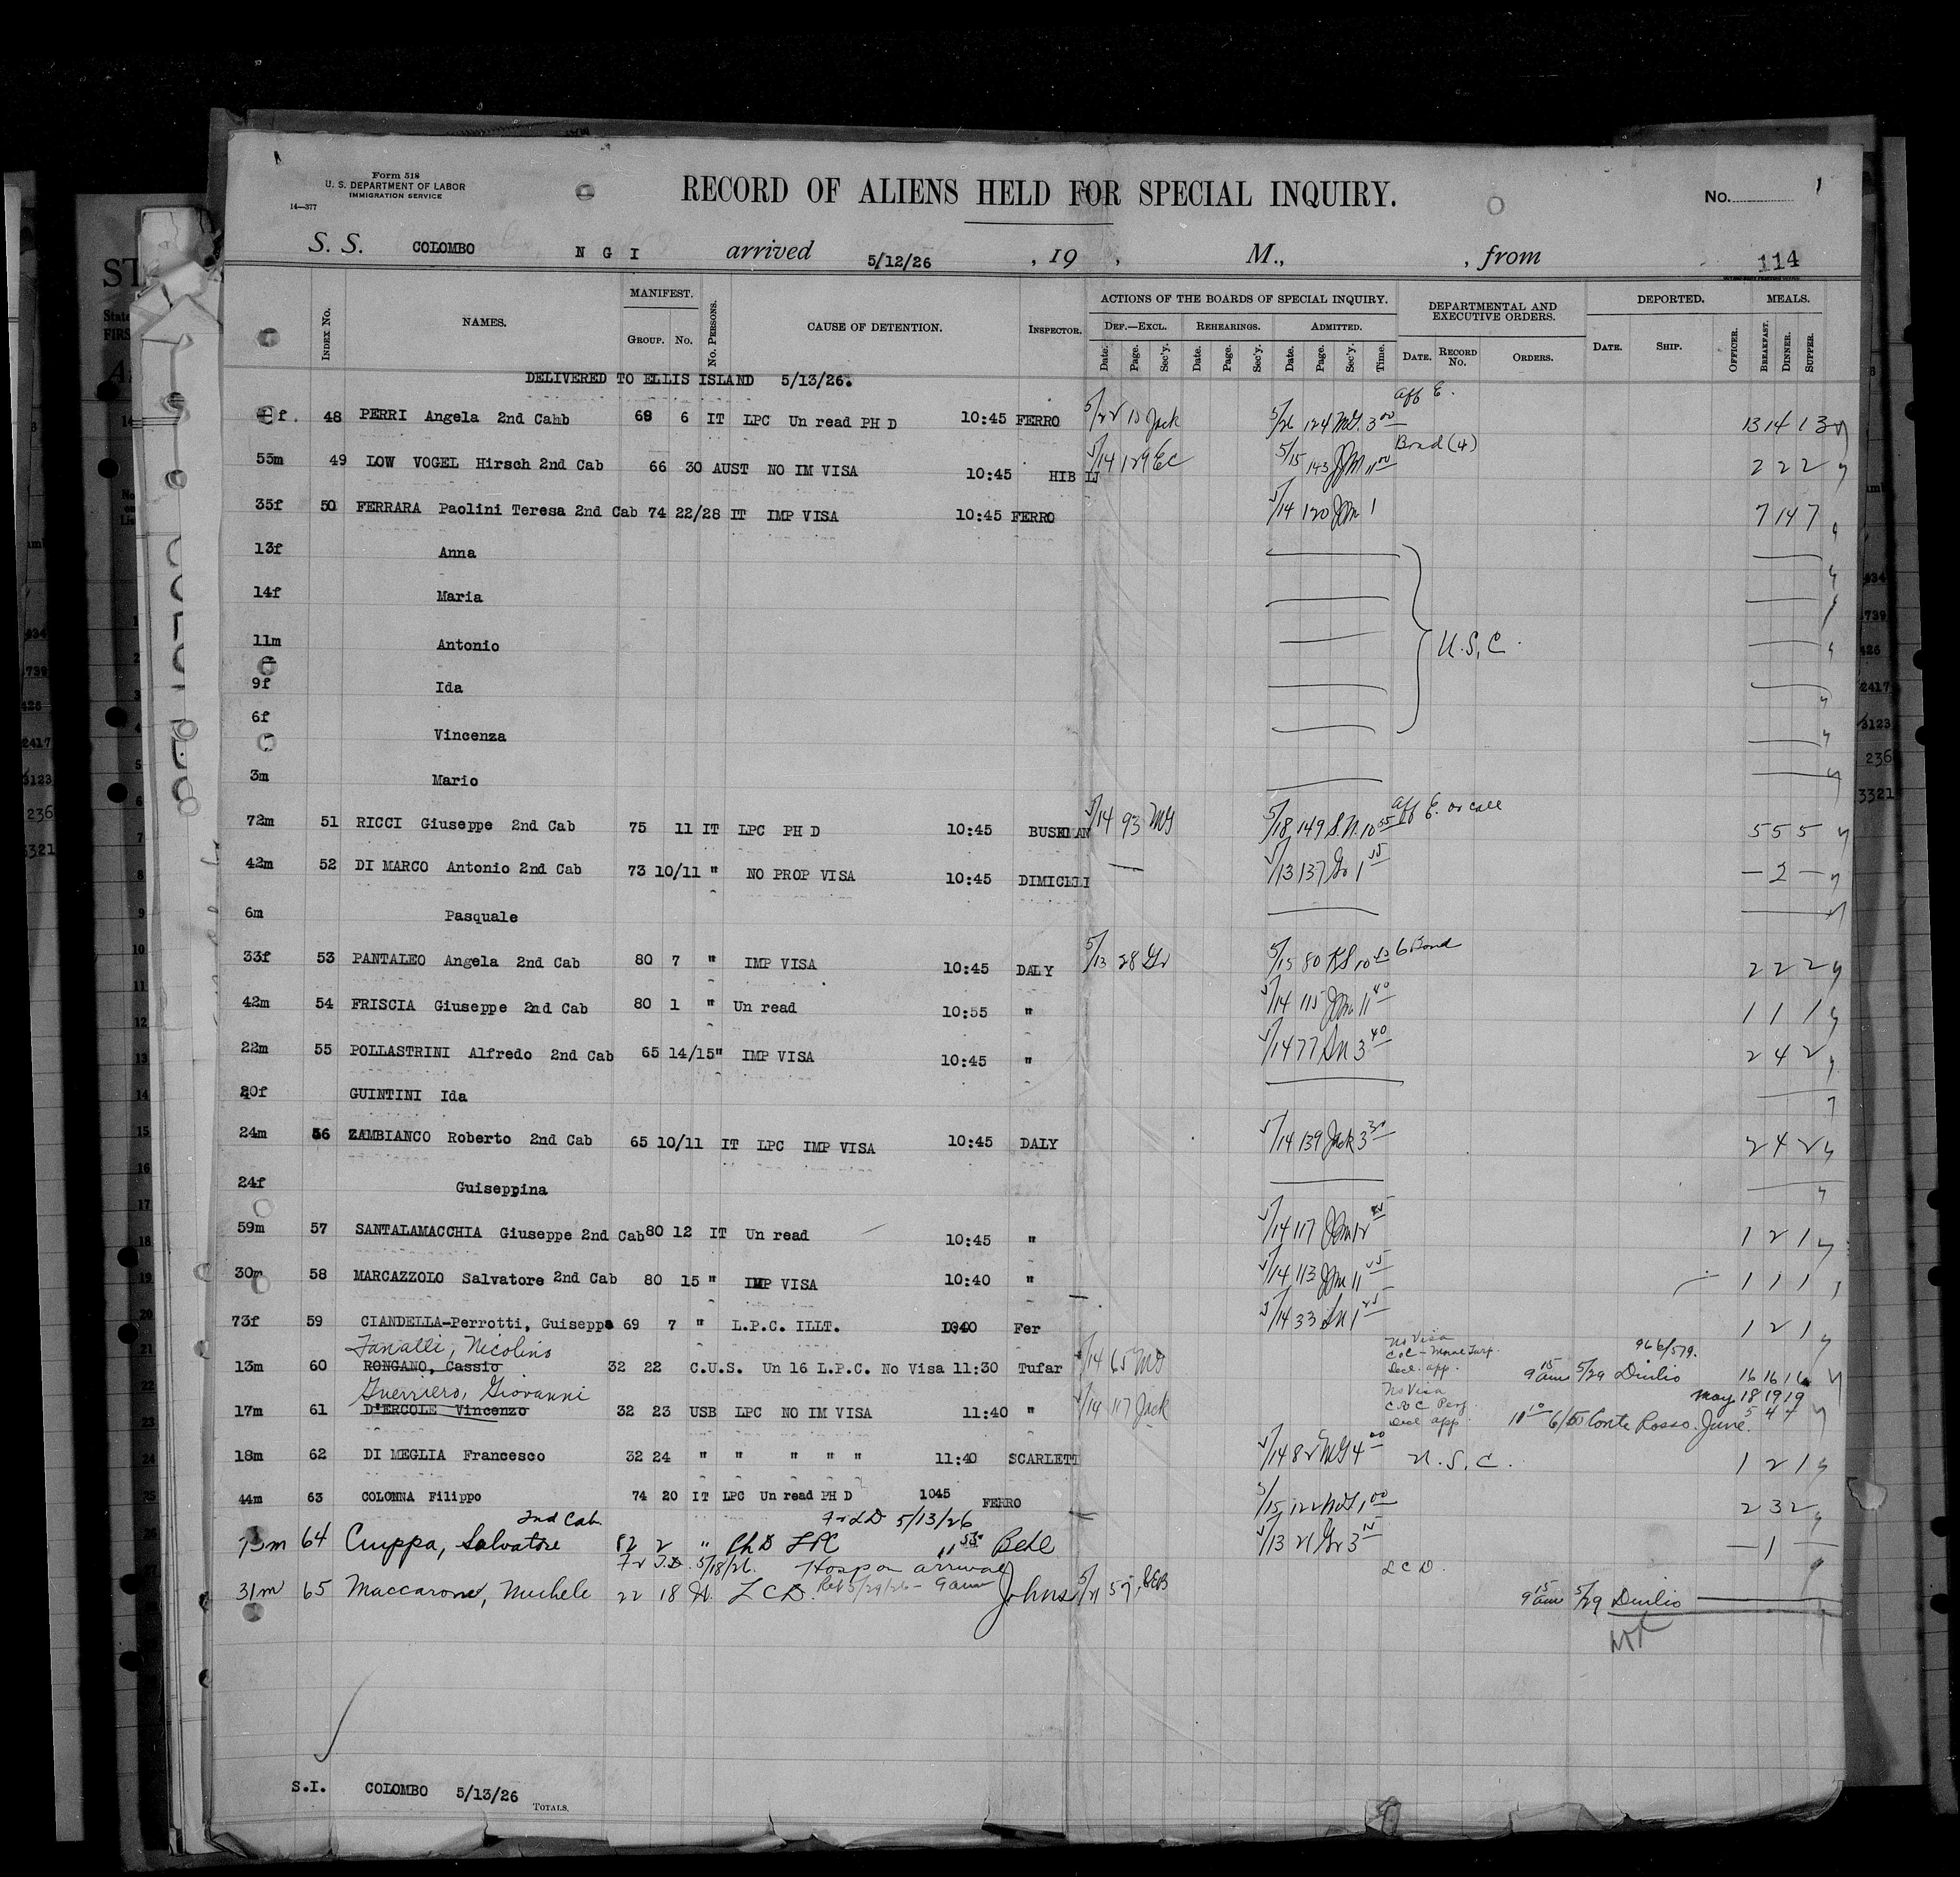 Form 518
U. S. DEPARTMENT OF LABOR
IMMIGRATION SERVICE
14—377
RECORD OF ALIENS HELD FOR SPECIAL INQUIRY.
No.
S. S. COLOMBO N G I arrived 5/12/26, 19 , M., , from 114
Index No. NAMES. MANIFEST. Group. No. No. Persons. CAUSE OF DETENTION. Inspector. ACTIONS OF THE BOARDS OF SPECIAL INQUIRY. Def.—Excl. Date. Page. Sec'y. Rehearings. Date. Page. Sec'y. Admitted. Date. Page. Sec'y. Time. DEPARTMENTAL AND EXECUTIVE ORDERS. Date. Record No. Orders. DEPORTED. Date. Ship. Officer. MEALS. Breakfast. Dinner. Supper.
DELIVERED TO ELLIS ISLAND 5/13/26.
Aff E.
f. 48 PERRI Angela 2nd Cabb 69 6 IT LPC Un read PH D 10:45 FERRO 5/22 13 Jack 5/26 124 MG 3 00 13 14 13
55m 49 LOW VOGEL Hirsch 2nd Cab 66 30 AUST NO IM VISA 10:45 HIB LJ 5/14 129 EC 5/15 143 JM 11 00 Bond (4) 2 2 2
35f 50 FERRARA Paolini Teresa 2nd Cab 74 22/28 IT IMP VISA 10:45 FERRO 5/14 120 JM 1 7 14 7
13f Anna
14f Maria
11m Antonio U.S.C.
9f Ida
6f Vincenza
3m Mario
72m 51 RICCI Giuseppe 2nd Cab 75 11 IT LPC PH D 10:45 5/14 93 MG 5/18 149 S.N. 10 55 Aff E. or call 5 5 5
42m 52 DI MARCO Antonio 2nd Cab 73 10/11 " NO PROP VISA 10:45 DIMICELI — 5/13 137 Gr 1 15 — 2 —
6m Pasquale
33f 53 PANTALEO Angela 2nd Cab 80 7 " IMP VISA 10:45 DALY 5/13 28 Gr 5/15 80 10 6 Bond 2 2 2
42m 54 FRISCIA Giuseppe 2nd Cab 80 1 " Un read 10:55 " 5/14 115 JM 11 40 1 1 1
22m 55 POLLASTRINI Alfredo 2nd Cab 65 14/15 " IMP VISA 10:45 " 5/14 77 SN 3 40 2 4 2
20f GUINTINI Ida
24m 56 ZAMBIANCO Roberto 2nd Cab 65 10/11 IT LPC IMP VISA 10:45 DALY 5/14 139 Jack 3 30 2 4 2
24f Guiseppina
59m 57 SANTALAMACCHIA Giuseppe 2nd Cab 80 12 IT Un read 10:45 " 5/14 117 JM 12 1 2 1
30m 58 MARCAZZOLO Salvatore 2nd Cab 80 15 " IMP VISA 10:40 " 5/14 113 JM 11 1 1 1
73f 59 CIANDELLA-Perrotti, Guiseppe 69 7 " L.P.C. ILLT. 1040 Fer 5/14 33 SN 1 1 2 1
Fanalli, Nicolino
No Visa
966/579.
13m 60 RONGANO, Cassio 32 22 C.U.S. Un 16 L.P.C. No Visa 11:30 Tufar 5/14 65 Decl. app. 9 15 am 5/29 Duilio 16 16 16
Guerriero, Giovanni
No Visa
May 18 19 19
17m 61 D'ERCOLE Vincenzo 32 23 USB LPC NO IM VISA 11:40 " 5/14 117 Jack Decl app. Conte Rosso. June
18m 62 DI MEGLIA Francesco 32 24 " " " " " 11:40 SCARLETT 5/14 82 MG 4 00 U.S.C. 1 2 1
44m 63 COLONNA Filippo 74 20 IT LPC Un read PH D 1045 FERRO 5/15 122 1 00 2 3 2
2nd Cab 5/13/26
73m 64 Ciuppa, Salvatore 82 2 " Ph D LPC 11 Behl 5/13 21 Gr 3 15 — 1 —
5/18/26. Hosp on arrival L C D.
31m 65 Maccarone, Michele 22 18 It. L C D. Johns 5/21 57 9 15 am 5/29 Duilio
S.I. COLOMBO 5/13/26
Totals.